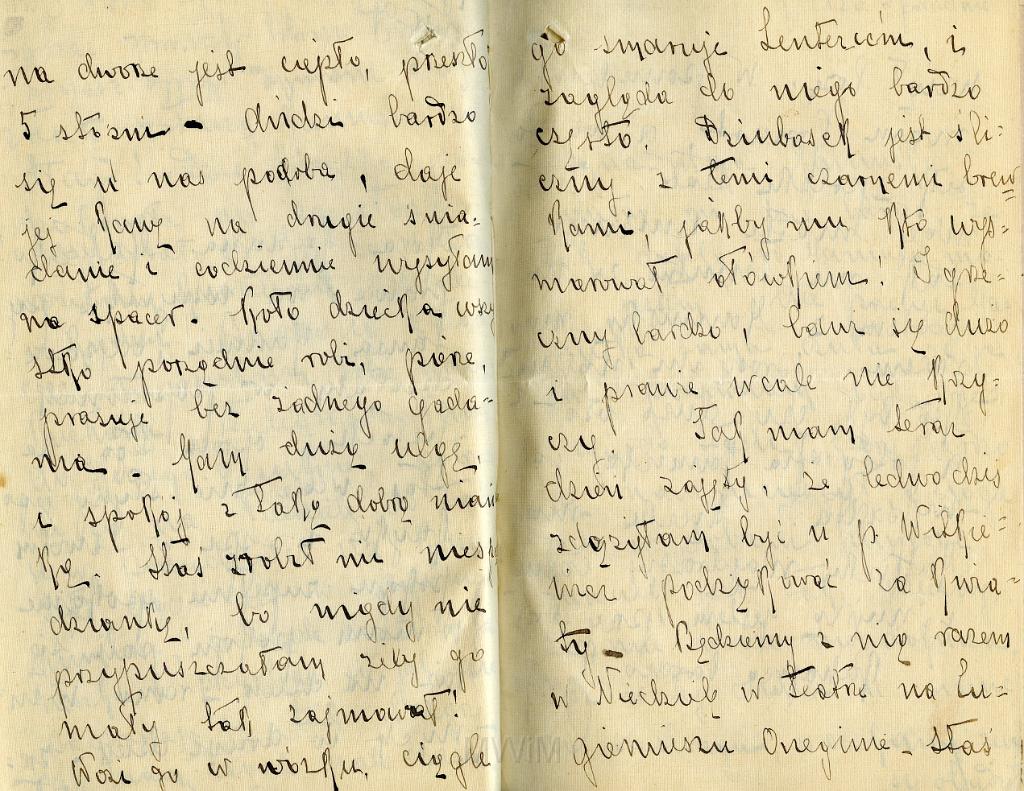 na dworze jest ciepło, przeszło
5 stopni - dzidzi bardzo
się u nas podoba, daje
jej kawę na drugie śnia-
danie i codziennie wysyłam
na spacer. Koło dziecka wszy
stko porządnie robi, pierze,
prasuje bez żadnego gada-
nia. Mam dużą ulgę,
i spokój z taką dobrą niań
ką. Staś zrobił mi niespo
dziankę, bo nigdy nie
przypuszczałam żeby go
mały tak zajmował!
Wozi go w wózku, ciągle
go smaruje Lenterićm, i
zagląda do niego bardzo
często. Dziubasek jest śli-
czny z temi czarnemi brew
kami, jakby mu kto wys-
marował ołówkiem! I grze-
czny bardzo, bawi się dużo
i prawie wcale nie krzy-
czy. Tak mam teraz
dzień zajęty, że ledwo dziś
zdążyłam być u p. Witkie-
wicz podziękować za kwia-
ty - Będziemy z nią razem
w Niedzielę w teatrze na Eu-
gieniuszu Onieginie - Staś
WMiNI